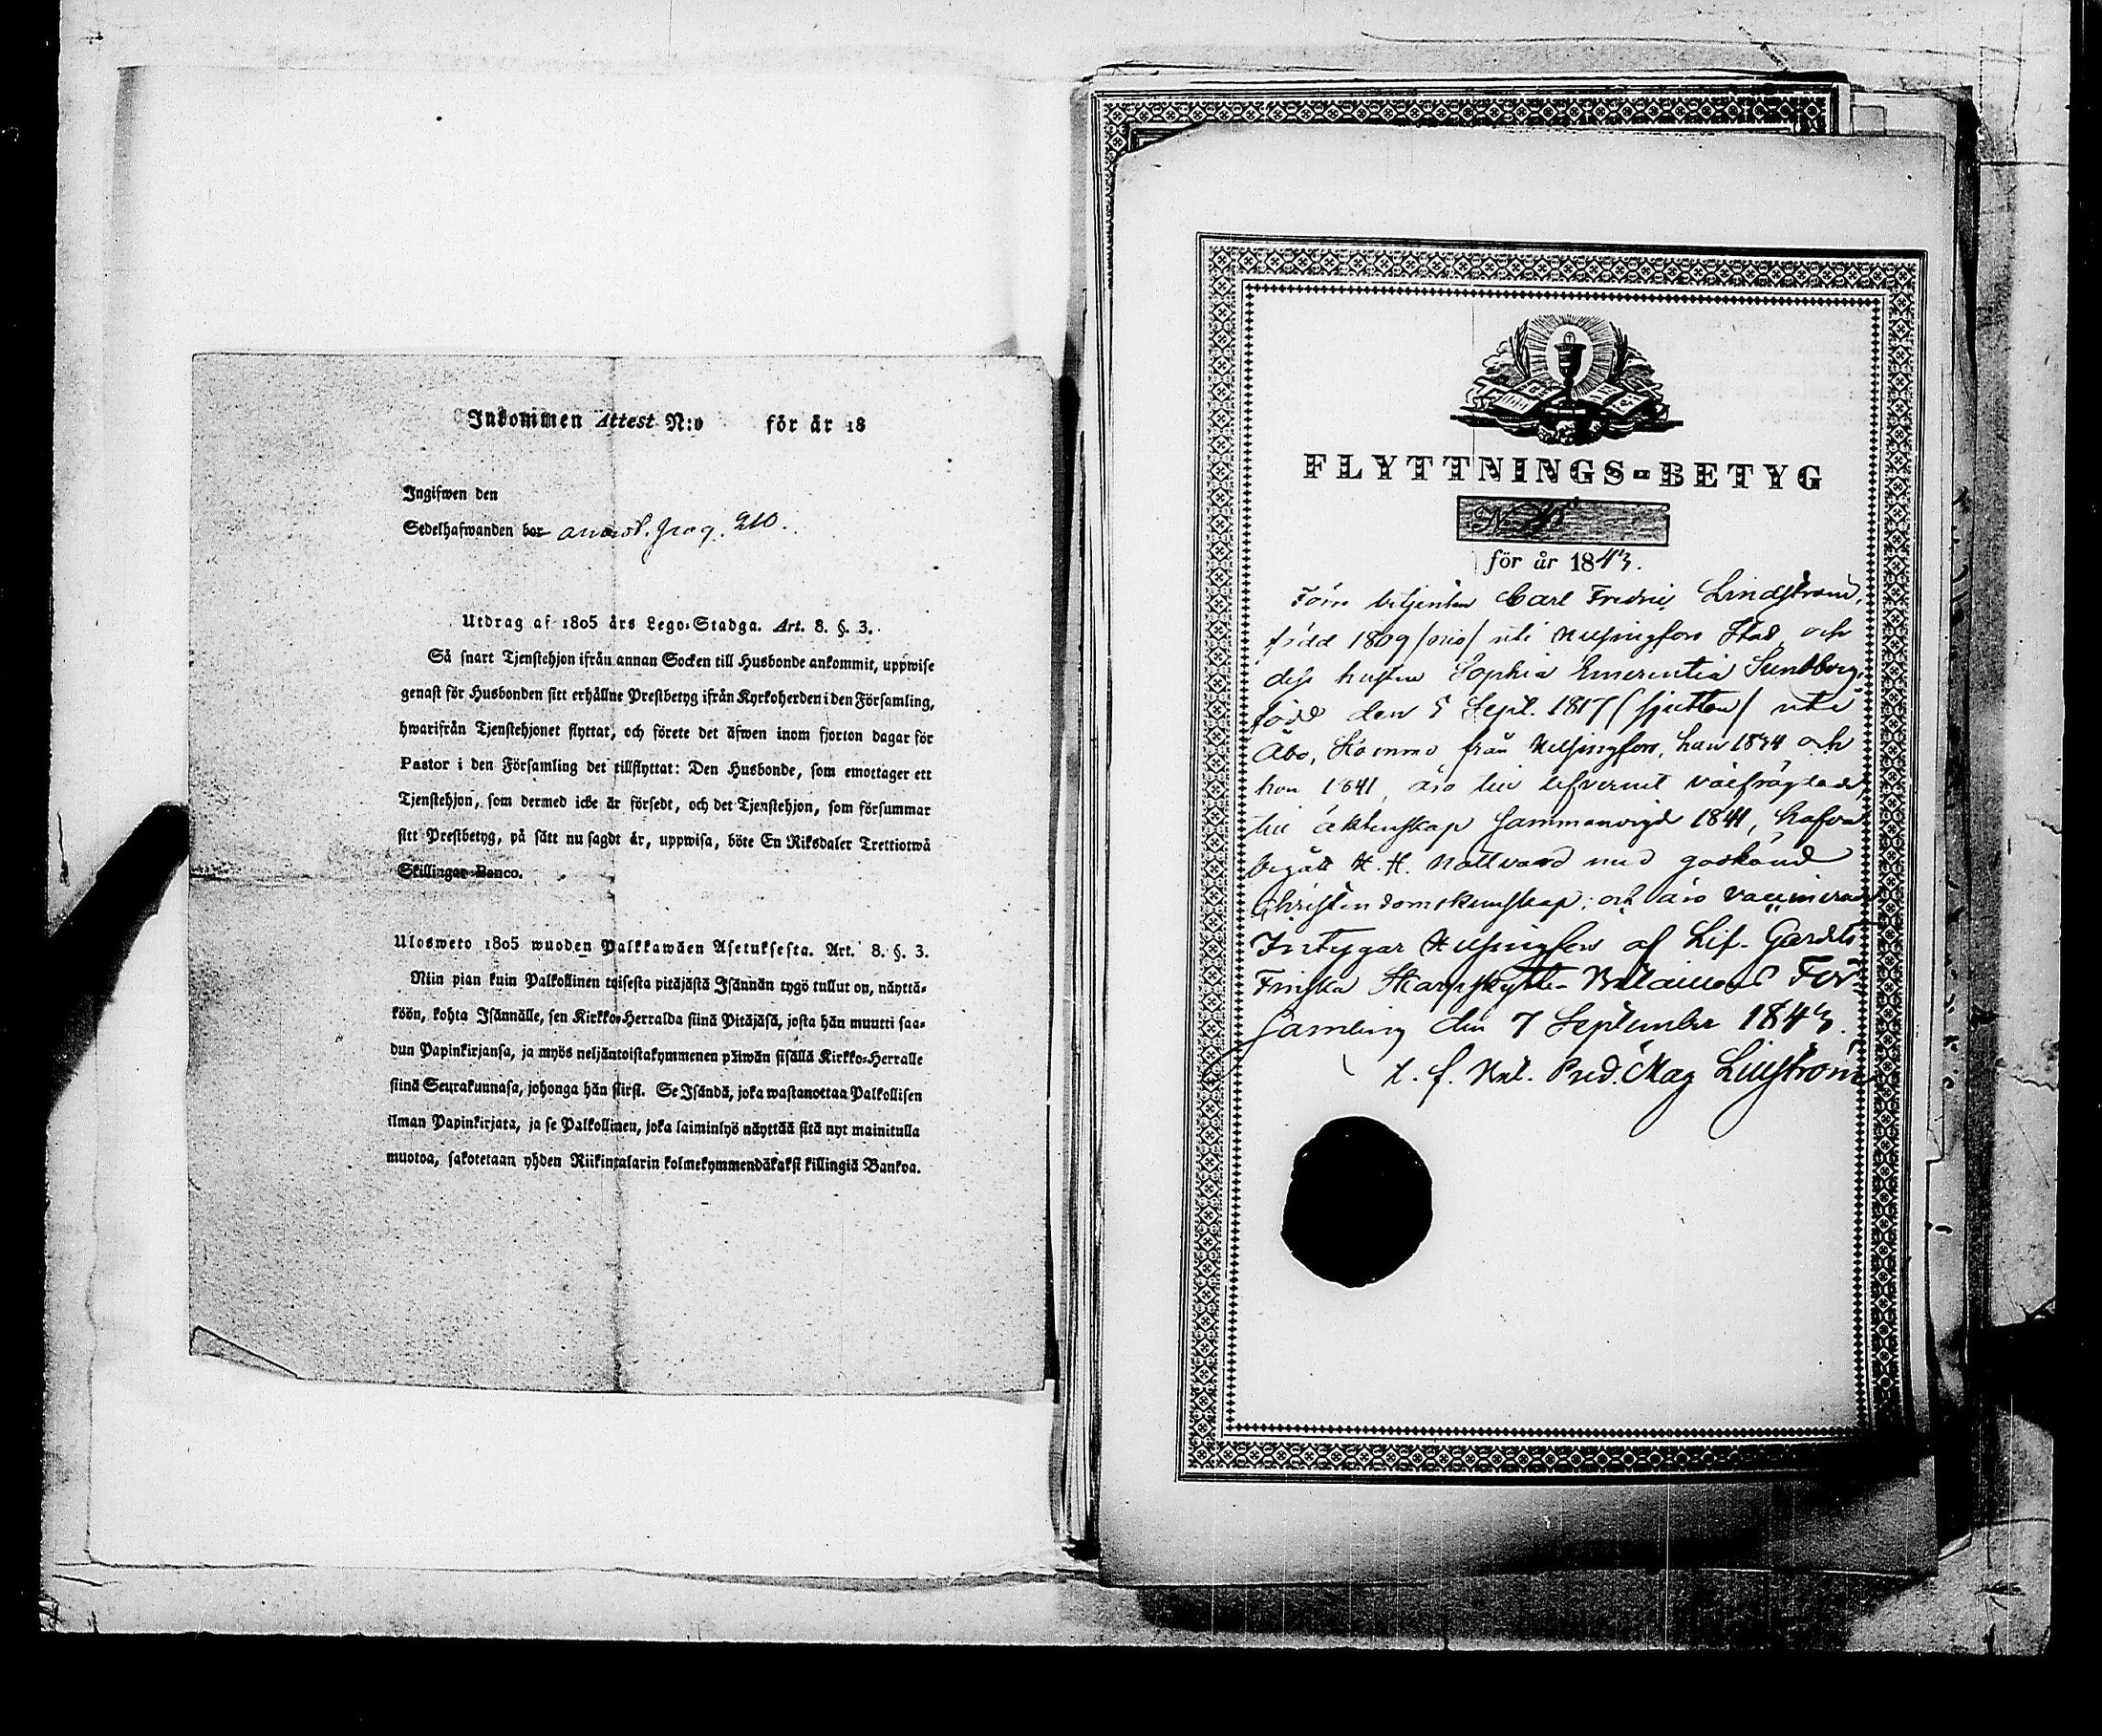 Inkommen Attest N:o för år 18
Ingifwen den
Sedelhafwanden bor annot. pag. 210.
Utdrag af 1805 års Lego-Stadga. Art. 8. §. 3.
Så snart Tjenstehjon ifrån annan Socken till Husbonde ankommit, uppwise
genast för Husbonden sitt erhållne Prestbetyg ifrån Kyrkoherden i den Församling,
hwarifrån Tjenstehjonet flyttat, och förete det äfwen inom fjorton dagar för
Pastor i den Församling det tillflyttat: Den Husbonde, som emottager ett
Tjenstehjon, som dermed icke är försedt, och det Tjenstehjon, som försummar
sitt Prestbetyg, på sätt nu sagdt är, uppwisa, böte En Riksdaler Trettiotwå
Skillingar Banco.
Ulosweto 1805 wuoden Palkkawäen Asetuksesta. Art. 8. §. 3.
Niin pian kuin Palkollinen toisesta pitäjästä Isännän tygö tullut on, näyttä-
köön, kohta Isännälle, sen Kirkko-Herralda siinä Pitäjäsä, josta hän muutti saa-
dun Papinkirjansa, ja myös neljäntoistakymmenen päiwän sisällä Kirkko-Herralle
siinä Seurakunnasa, johonga hän siirsi. Se Isändä, joka wastanottaa Palkollisen
ilman Papinkirjata, ja se Palkollinen, joka laiminlyö näyttää sitä nyt mainitulla
muotoa, sakotetaan yhden Riikintalarin kolmekymmendäkaksi killingiä Bankoa.
FLYTTNINGS-BETYG
N
för år 1843.
betjenten Carl Fredric Lindström,
född 1809 /nio/ uti Helsingfors Stad och
dess hustru Sophia Emerentia Sundberg,
född den 5 Sept. 1817 (sjutton) uti
Åbo, komne från Helsingfors, han 1834 och
hon 1841, äro till lefvernet välfrägdade,
till äktenskap sammanvigde 1841, hafva
begått H. H. Nattvard med godkänd
Christendomskunskap; och äro vaccinerade
Intygar Helsingfors af Lif-Gardets
Finska Skarpskytte-Bataillons För-
samling den 7 September 1843.
t. f. Bat. Pred. Mag